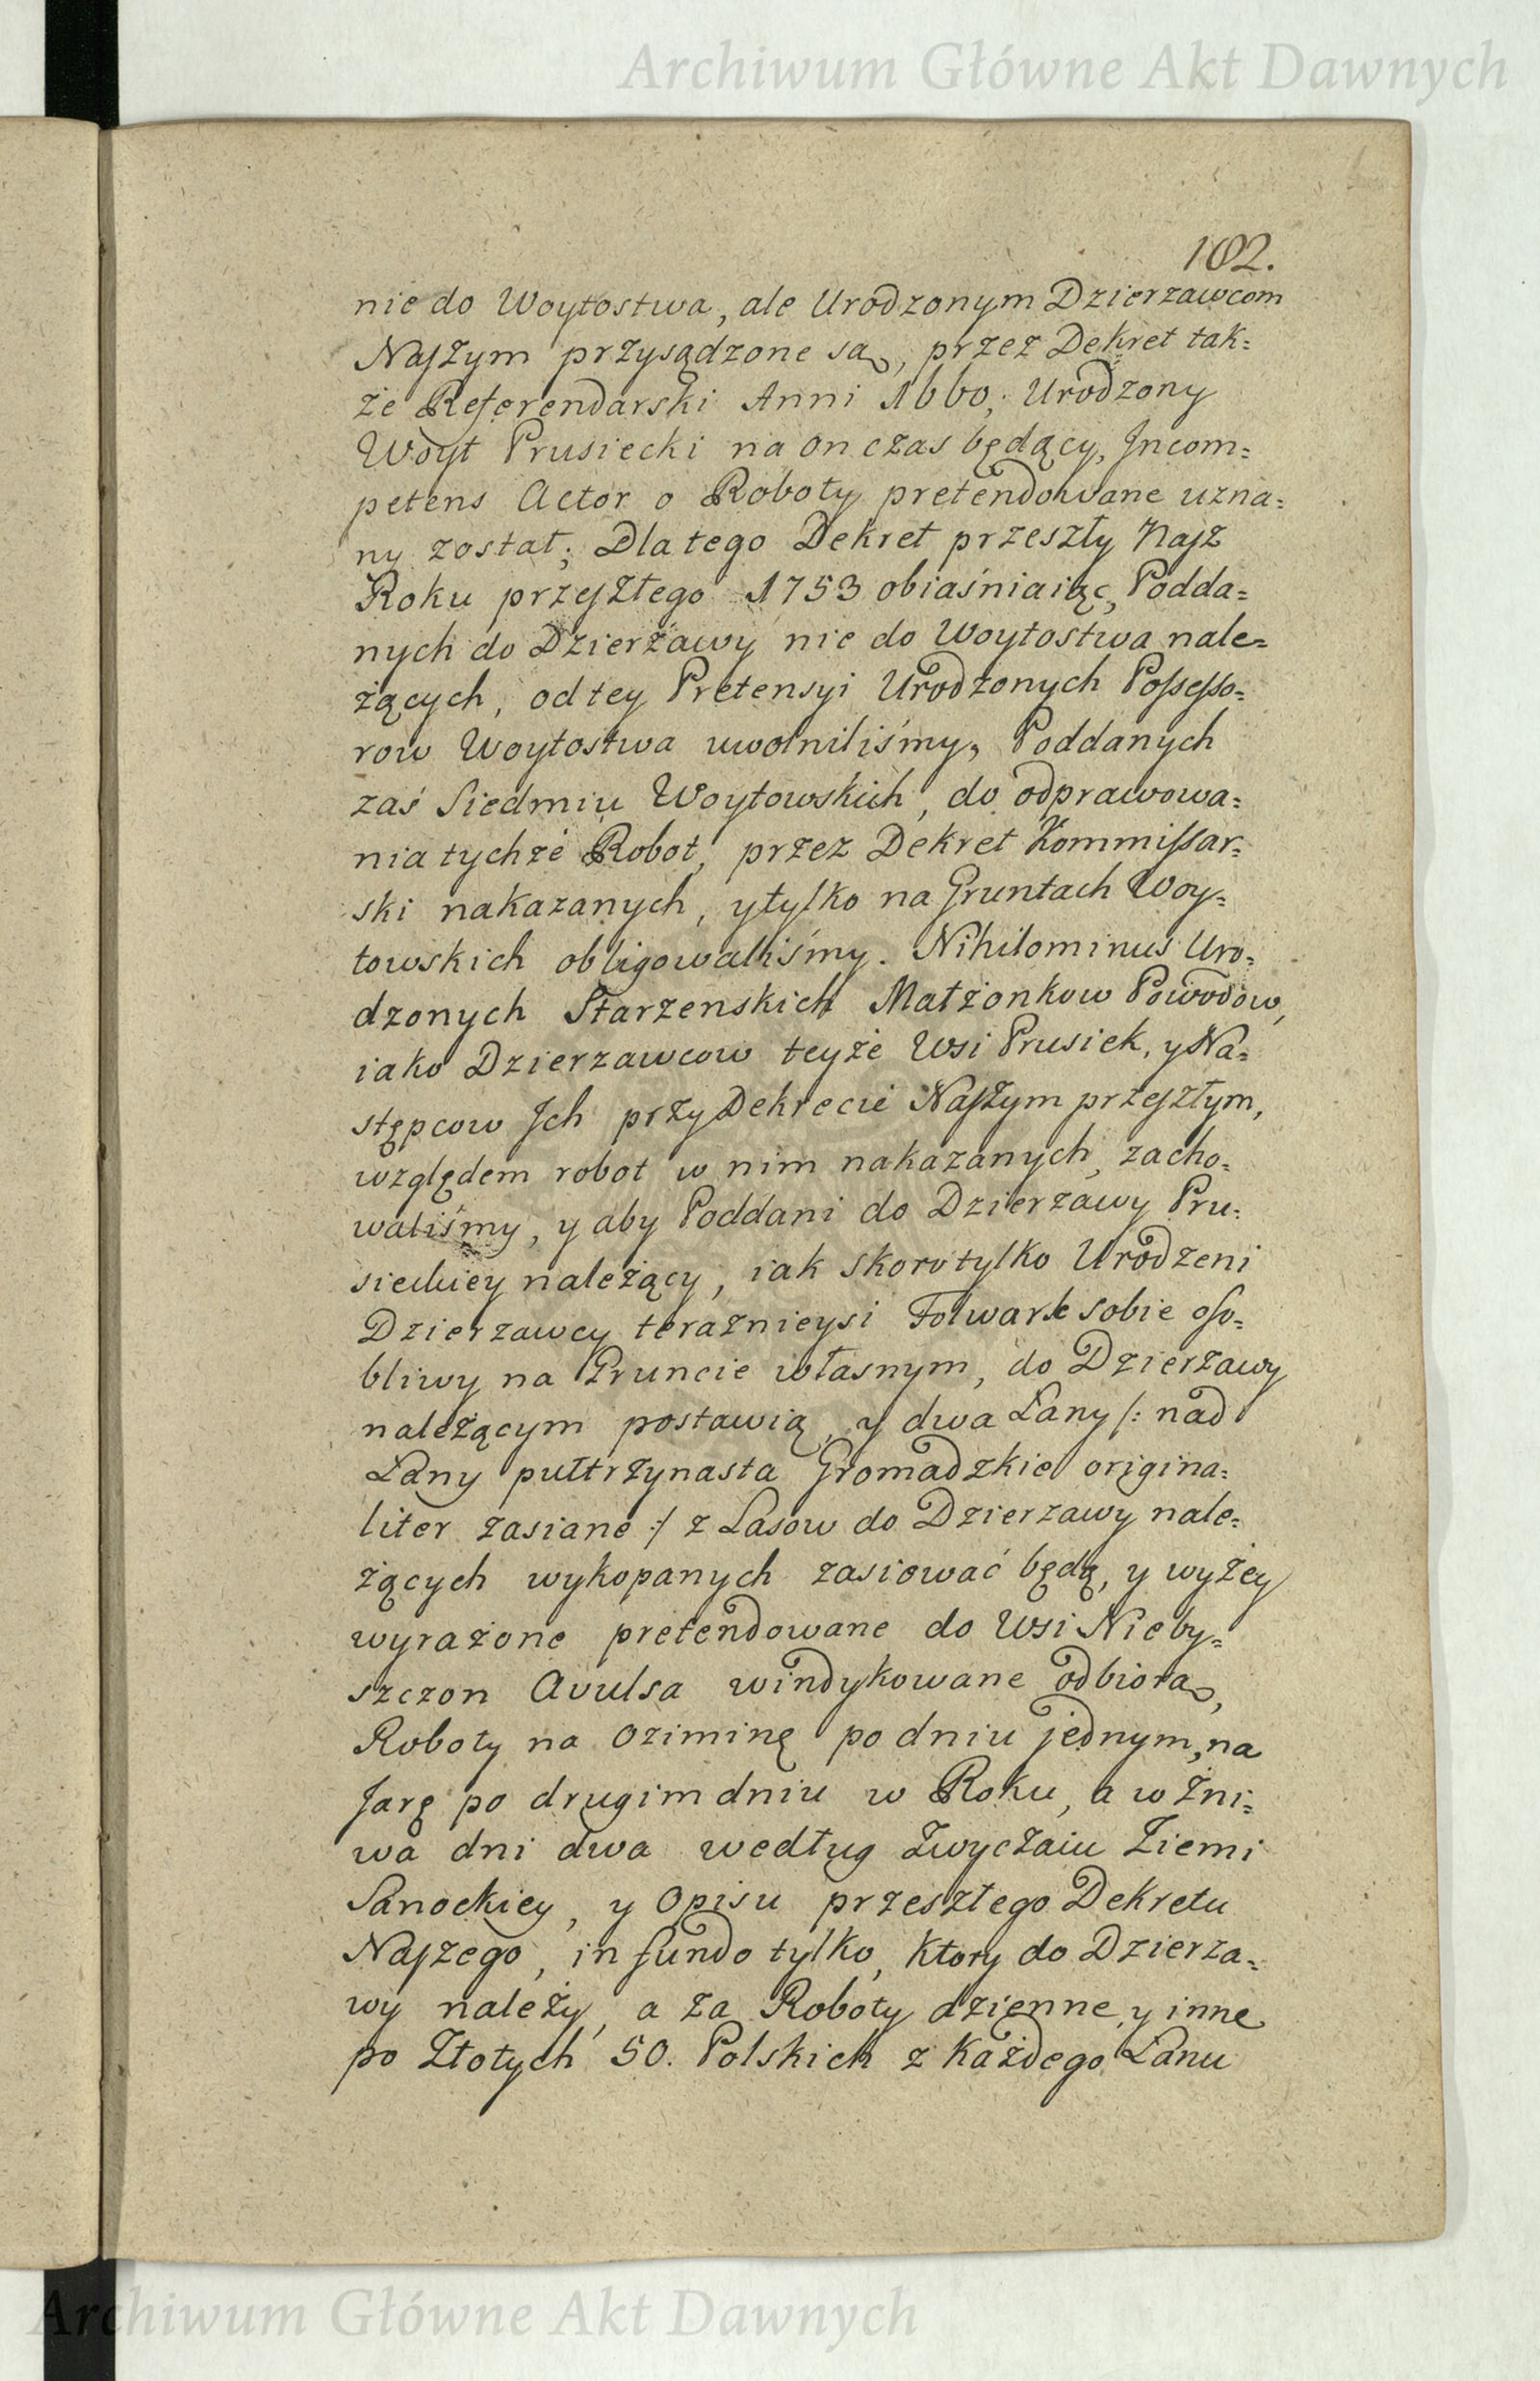 Archiwum Główne Akt Dawnych
102.
nie do Woytostwa, ale Urodzonym Dzierzawcom
Naszym przysądzone są, przez Dekret tak=
że Referendarski Anni 1660, Urodzony
Woyt Prusiecki na on czas będący, Jncom=
petens Actor o Roboty pretendowane uzna=
ny został; Dlatego Dekret przeszły Nasz
Roku przeszłego 1753 obiaśniaiąc, Podda=
nych do Dzierżawy nie do Woytostwa nale=
żących, od tey Pretensyi Urodzonych Possesso=
row Woytostwa uwolniliśmy, Poddanych
zaś Siedmiu Woytowskich, do odprawowa=
nia tychże Robot, przez Dekret Kommissar=
ski nakazanych, y tylko na Gruntach Woy=
towskich obligowaliśmy. Nihilominus Uro=
dzonych Starzenskich Małżonkow Powodow,
iako Dzierzawcow teyże Wsi Prusiek, y Na=
stępcow Jch przy Dekrecie Naszym przeszłym,
względem robot w nim nakazanych, zacho=
waliśmy, y aby Poddani do Dzierżawy Pru=
sieckiey należący, iak skoro tylko Urodzeni
Dzierzawcy teraznieysi Folwark sobie oso=
bliwy na Gruncie własnym, do Dzierżawy
należącym postawią, y dwa Łany /: nad
Łany pułtrzynasta Gromadzkie origina=
liter zasiane :/ z Lasow do Dzierzawy nale=
żących wykopanych zasiować będą, y wyżey
wyrażone pretendowane do Wsi Nieby=
szczon Avulsa windykowane odbiorą,
Roboty na Oziminę po dniu jednym, na
Jarę po drugim dniu w Roku, a w Żni=
wa dni dwa według Zwyczaiu Ziemi
Sanockiey, y Opisu przeszłego Dekretu
Naszego, in fundo tylko, ktory do Dzierza=
wy należy, a za Roboty dzienne y inne
po Złotych 50. Polskich z każdego Łanu
Archiwum Główne Akt Dawnych